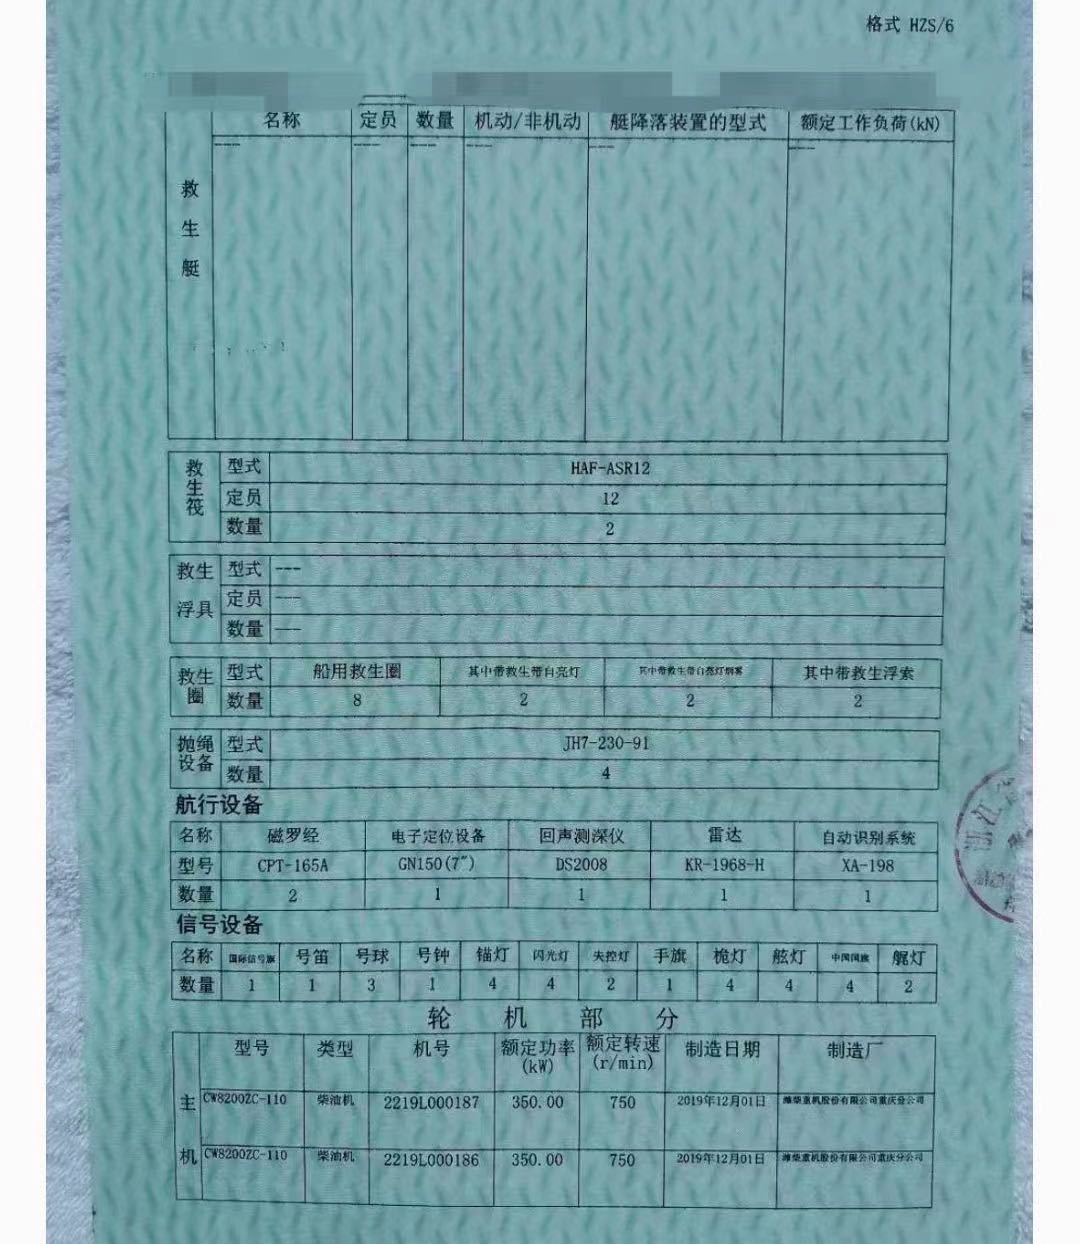 格式 HZS/6
名称 定员 数量 机动/非机动 艇降落装置的型式 额定工作负荷(kN)
救生艇 --- --- --- --- --- ---
救生筏 型式 HAF-ASR12
定员 12
数量 2
救生浮具 型式 ---
定员 ---
数量 ---
救生圈 型式 船用救生圈 其中带救生带自亮灯 其中带救生带自亮灯烟雾 其中带救生浮索
数量 8 2 2 2
抛绳设备 型式 JH7-230-91
数量 4
航行设备
名称 磁罗经 电子定位设备 回声测深仪 雷达 自动识别系统
型号 CPT-165A GN150(7") DS2008 KR-1968-H XA-198
数量 2 1 1 1 1
信号设备
名称 国际信号旗 号笛 号球 号钟 锚灯 闪光灯 失控灯 手旗 桅灯 舷灯 中国国旗 艉灯
数量 1 1 3 1 4 4 2 1 4 4 4 2
轮机部分
型号 类型 机号 额定功率(kW) 额定转速(r/min) 制造日期 制造厂
主机 CW8200ZC-110 柴油机 2219L000187 350.00 750 2019年12月01日 潍柴重机股份有限公司重庆分公司
CW8200ZC-110 柴油机 2219L000186 350.00 750 2019年12月01日 潍柴重机股份有限公司重庆分公司
浙江省